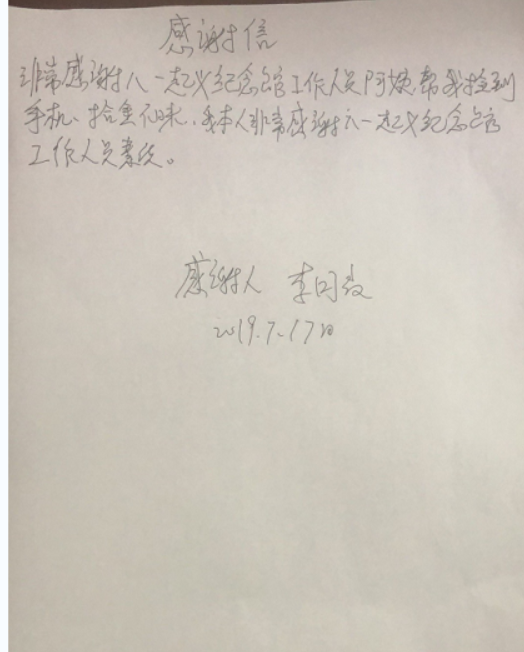 感谢信
非常感谢八一起义纪念馆工作人员阿姨帮我捡到
手机、拾金不昧,我本人非常感谢八一起义纪念馆
工作人员素质。
感谢人 李同
2019.7.17日